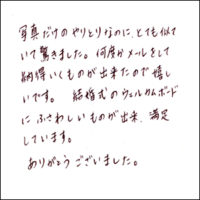 写真だけのやりとりなのに、とても似て
いて驚きました。何度かメールをして
納得いくものが出来たので嬉し
いです。 結婚式のウェルカムボード
にふさわしいものが出来、満足
しています。
ありがとうございました。